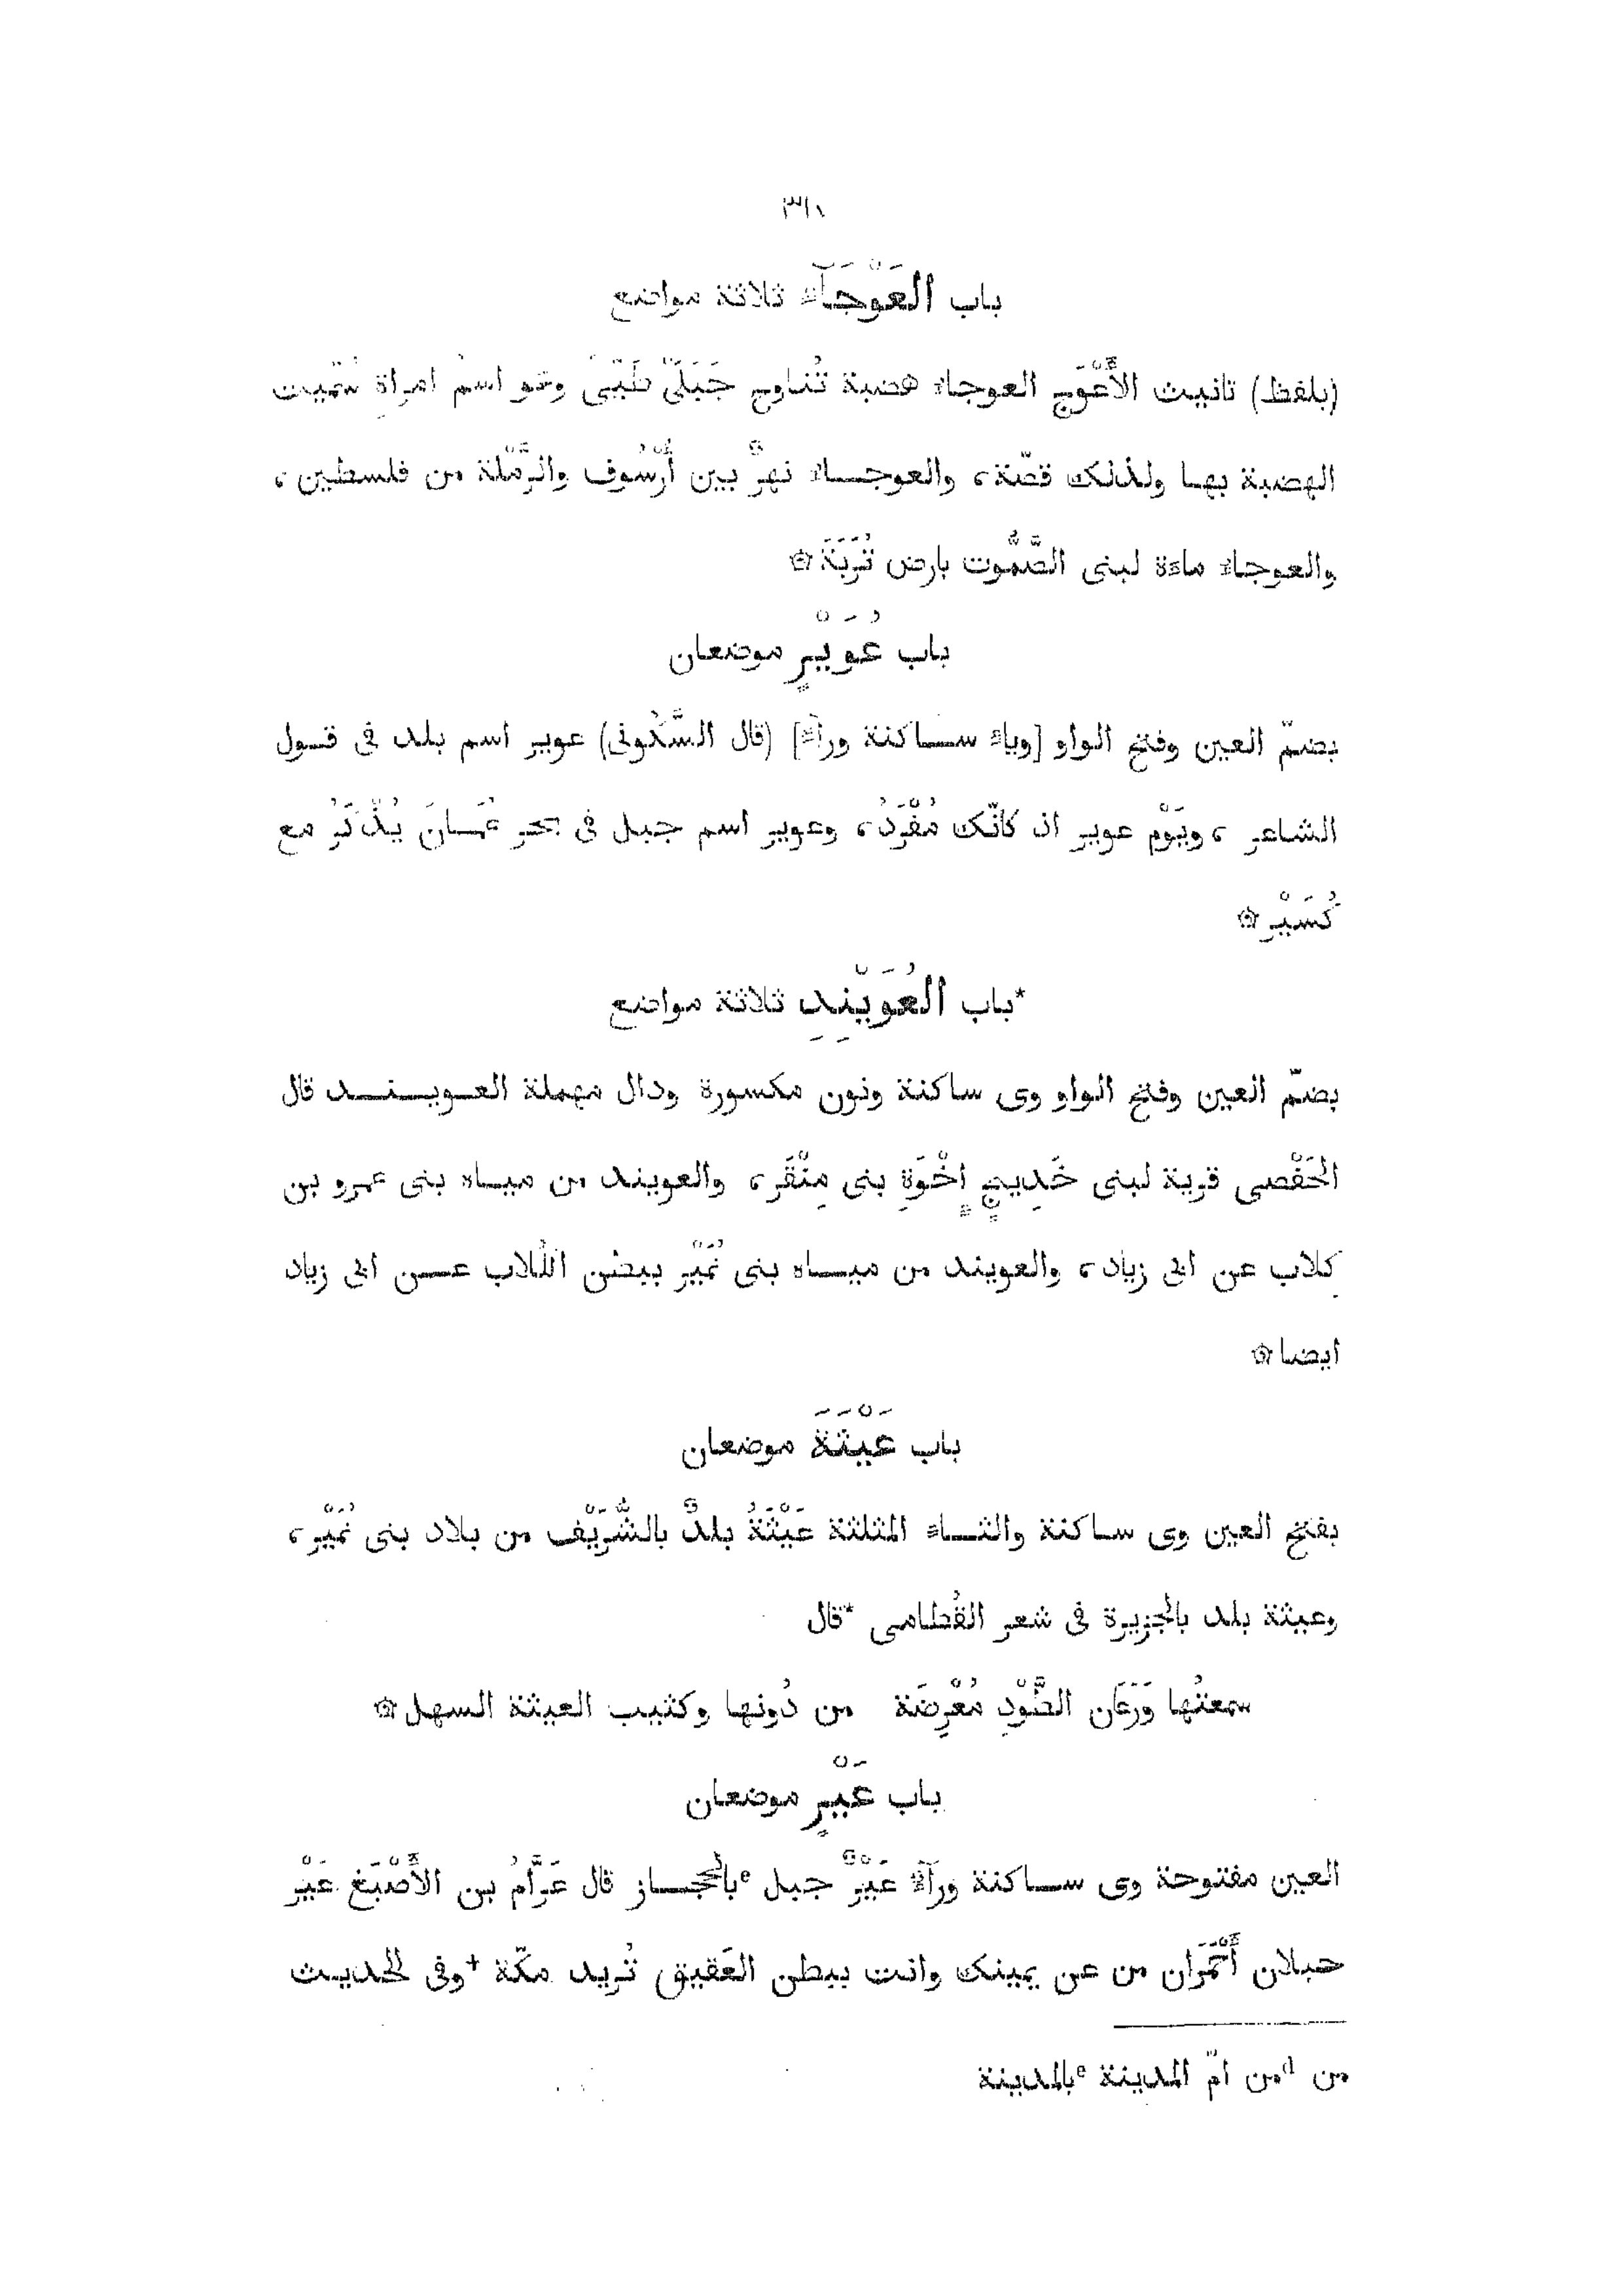 ٣١٨
باب العَوْجَآء ثلاثة مواضع
(بلفظ) تانيث الأَعْوَج العوجاء هضبة تُناوح جَبَلَىْ طَيّىٌ وهو اسمُ امراة سُمّيت
الهضبة بها ولذلك قصّة، والعوجاء نهرٌ بين أَرْسُوف والرَّمْلة من فلسطين،
والعوجاء ماءة لبنى الصَّمُّوت بارض تُرَبَةَ ۞
باب عُوَيْرٍ موضعان
بضمّ العين وفتح الواو [وياء ساكنة وراء] (قال السَّكُونى) عوير اسم بلد فى قول
الشاعر، ويَوْم عوير اذ كانّك مُفْرَدُ، وعوير اسم جبل فى بحر عُمَانَ يُذْكَرُ مع
كُسَيْر ۞
*باب العُوَيْنِدِ ثلاثة مواضع
بضمّ العين وفتح الواو وى ساكنة ونون مكسورة ودال مهملة العويند قال
الحَفْصى قرية لبنى خَدِيجٍ إِخْوَةِ بنى مِنْقَر، والعويند من مياه بنى عمرو بن
كِلاب عن ابى زياد، والعويند من مياه بنى نُمَيْر ببطن الكُلاب عن ابى زياد
ايضا ۞
باب عَيْثَةَ موضعان
بفتح العين وى ساكنة والثاء المثلثة عَيْثَةُ بلدٌ بالشُّرَيْف من بلاد بنى نُمَيْر،
وعيثة بلد بالجزيرة فى شعر القُطامى *قال
سمعتُها وَرَعَان الطَّوْدِ مُعْرِضَة من دُونها وكثيب العيثة السهل ۞
باب عَيْرٍ موضعان
العين مفتوحة وى ساكنة ورآء عَيْرٌ جبل ᵉبالحجاز قال عَرَّامُ بن الأَصْبَغ عَيْر
جبلان أَحْمَرَان من عن يمينك وانت ببطن العَقيق تُريد مكّة +وفى الحديث
من ᵈمن امّ المدينة ᵉبالمدينة